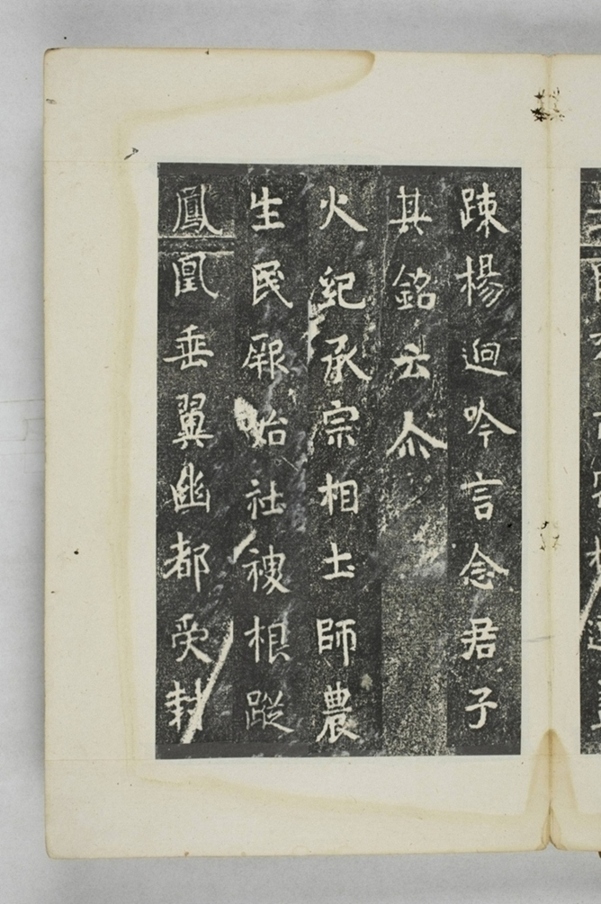 踈楊逈吟言念君子
其銘云尒
火紀承宗相土師農
生民厥始社禝根蹤
鳳凰垂翼幽都受封